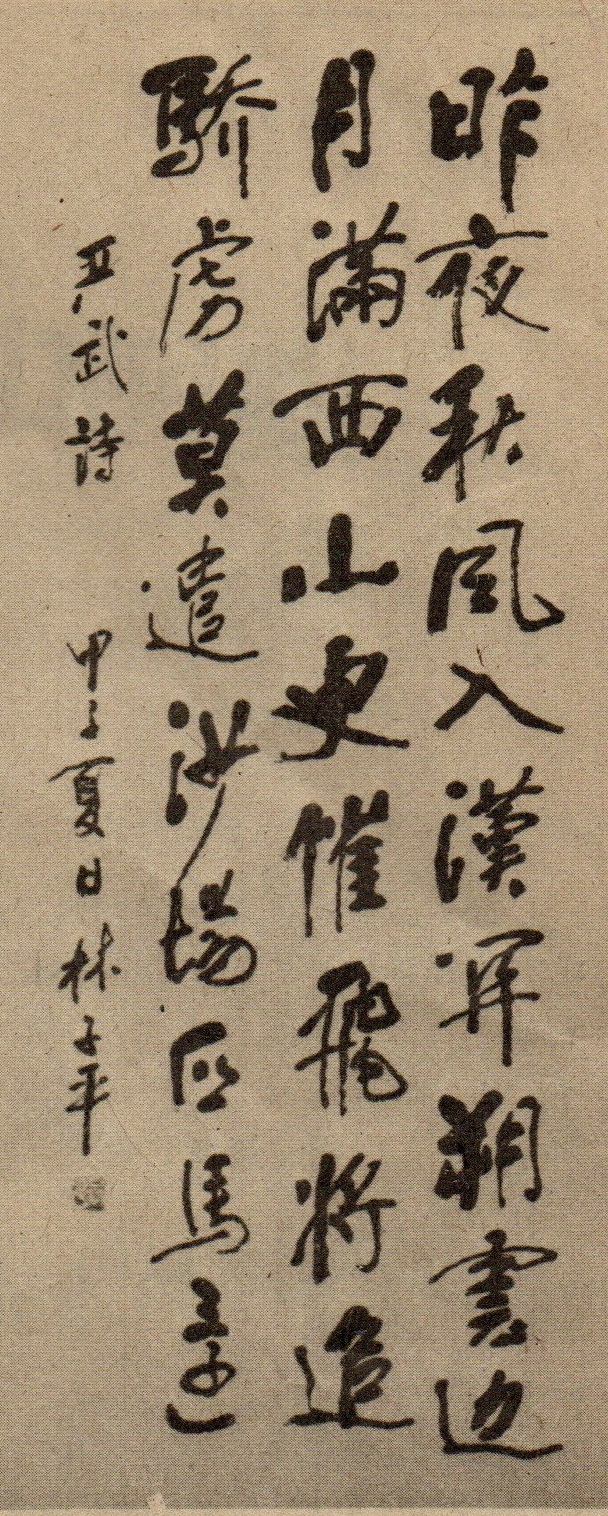 昨夜秋風入漢關朔雲边
月滿西山更催飛將追
驕虜莫遣沙場匹馬還
严武詩 甲子夏日 林子平